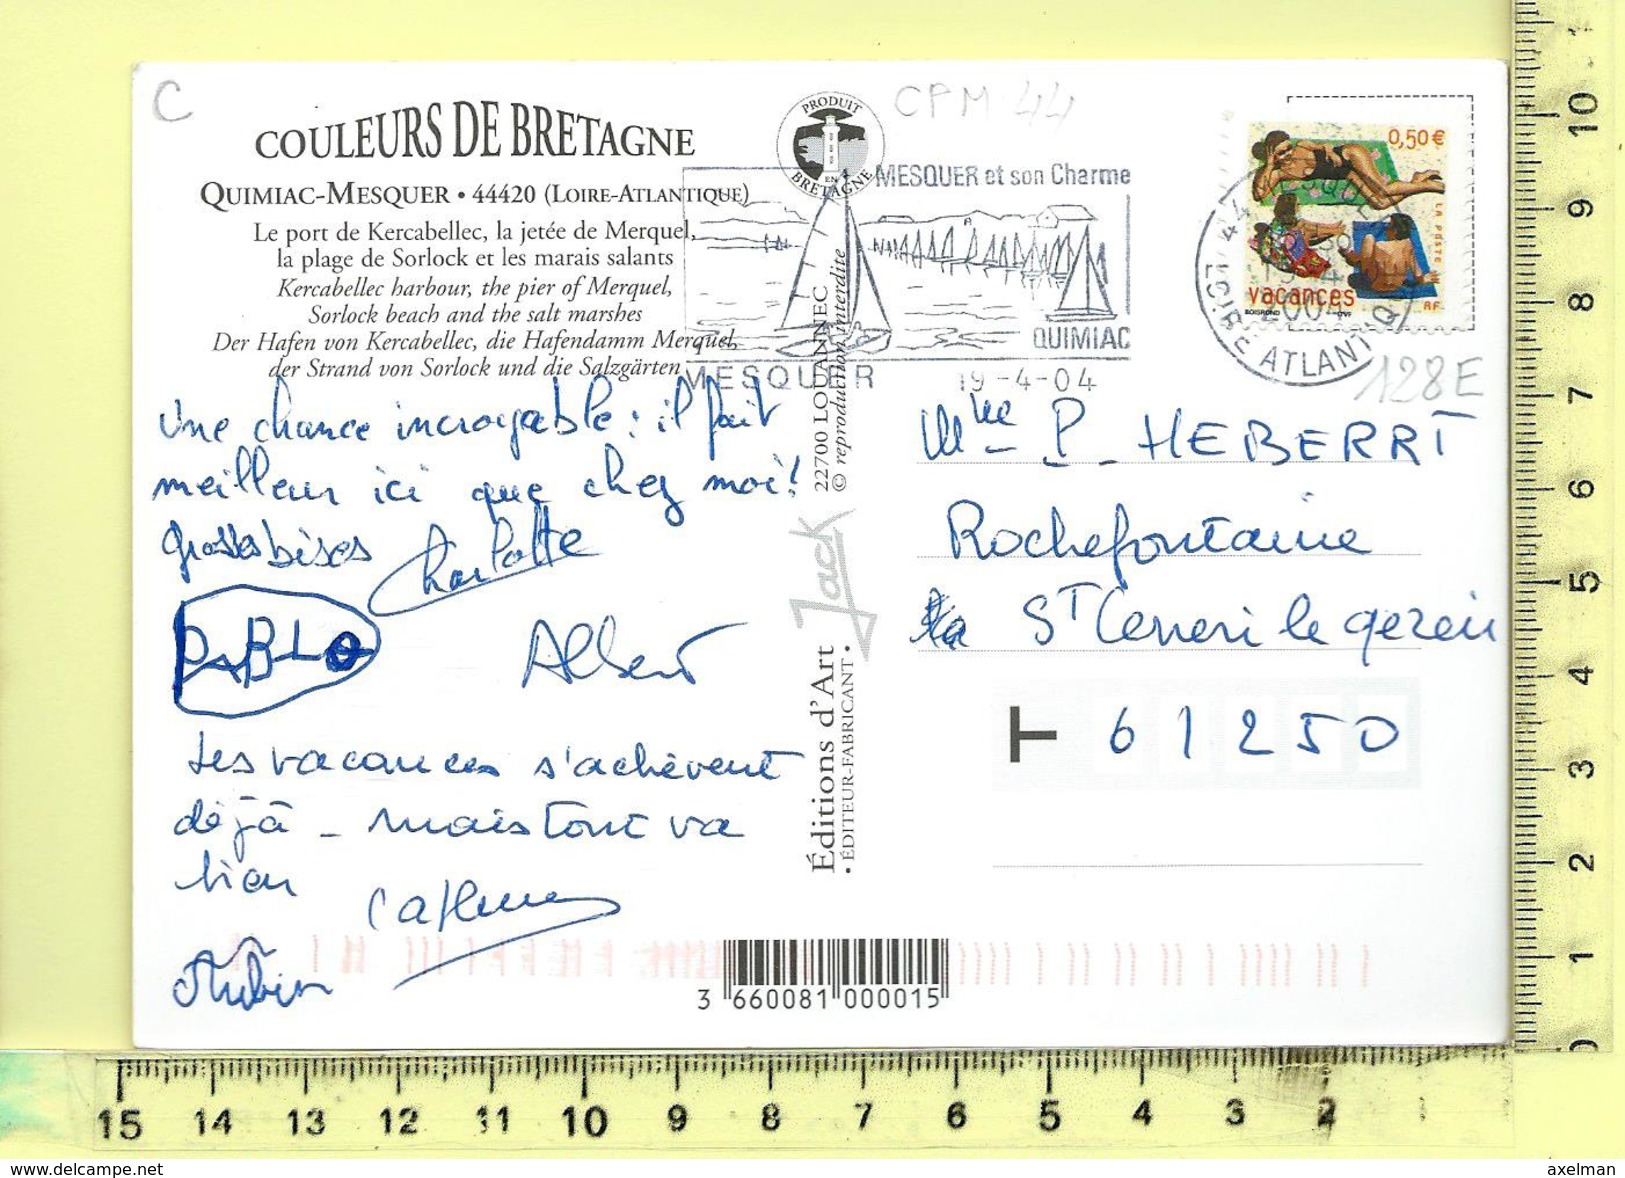 C
COULEURS DE BRETAGNE
QUIMIAC-MESQUER • 44420 (LOIRE-ATLANTIQUE)
Le port de Kercabellec, la jetée de Merquel,
la plage de Sorlock et les marais salants
Kercabellec harbour, the pier of Merquel,
Sorlock beach and the salt marshes
Der Hafen von Kercabellec, die Hafendamm Merquel,
der Strand von Sorlock und die Salzgärten
PRODUIT
EN
BRETAGNE
CPM 44
MESQUER et son Charme
QUIMIAC
MESQUER 19-4-04
0,50 €
LA POSTE
RF
vacances
44
LOIRE ATLANTIQUE
128E
Une chance incroyable : il fait
meilleur ici que chez moi !
grosses bises Charlotte
PABLO
Albert
Les vacances s'achèvent
déjà - mais tout va
bien
22700 LOUANNEC
© reproduction interdite
Jack
Éditions d'Art
• ÉDITEUR-FABRICANT •
Mme P. HEBERRT
Rochefontaine
St Ceneri le gerein
T 61250
3 660081 000015
10
9
8
7
6
5
4
3
2
1
15 14 13 12 11 10 9 8 7 6 5 4 3 2 1
www.delcampe.net
axelman